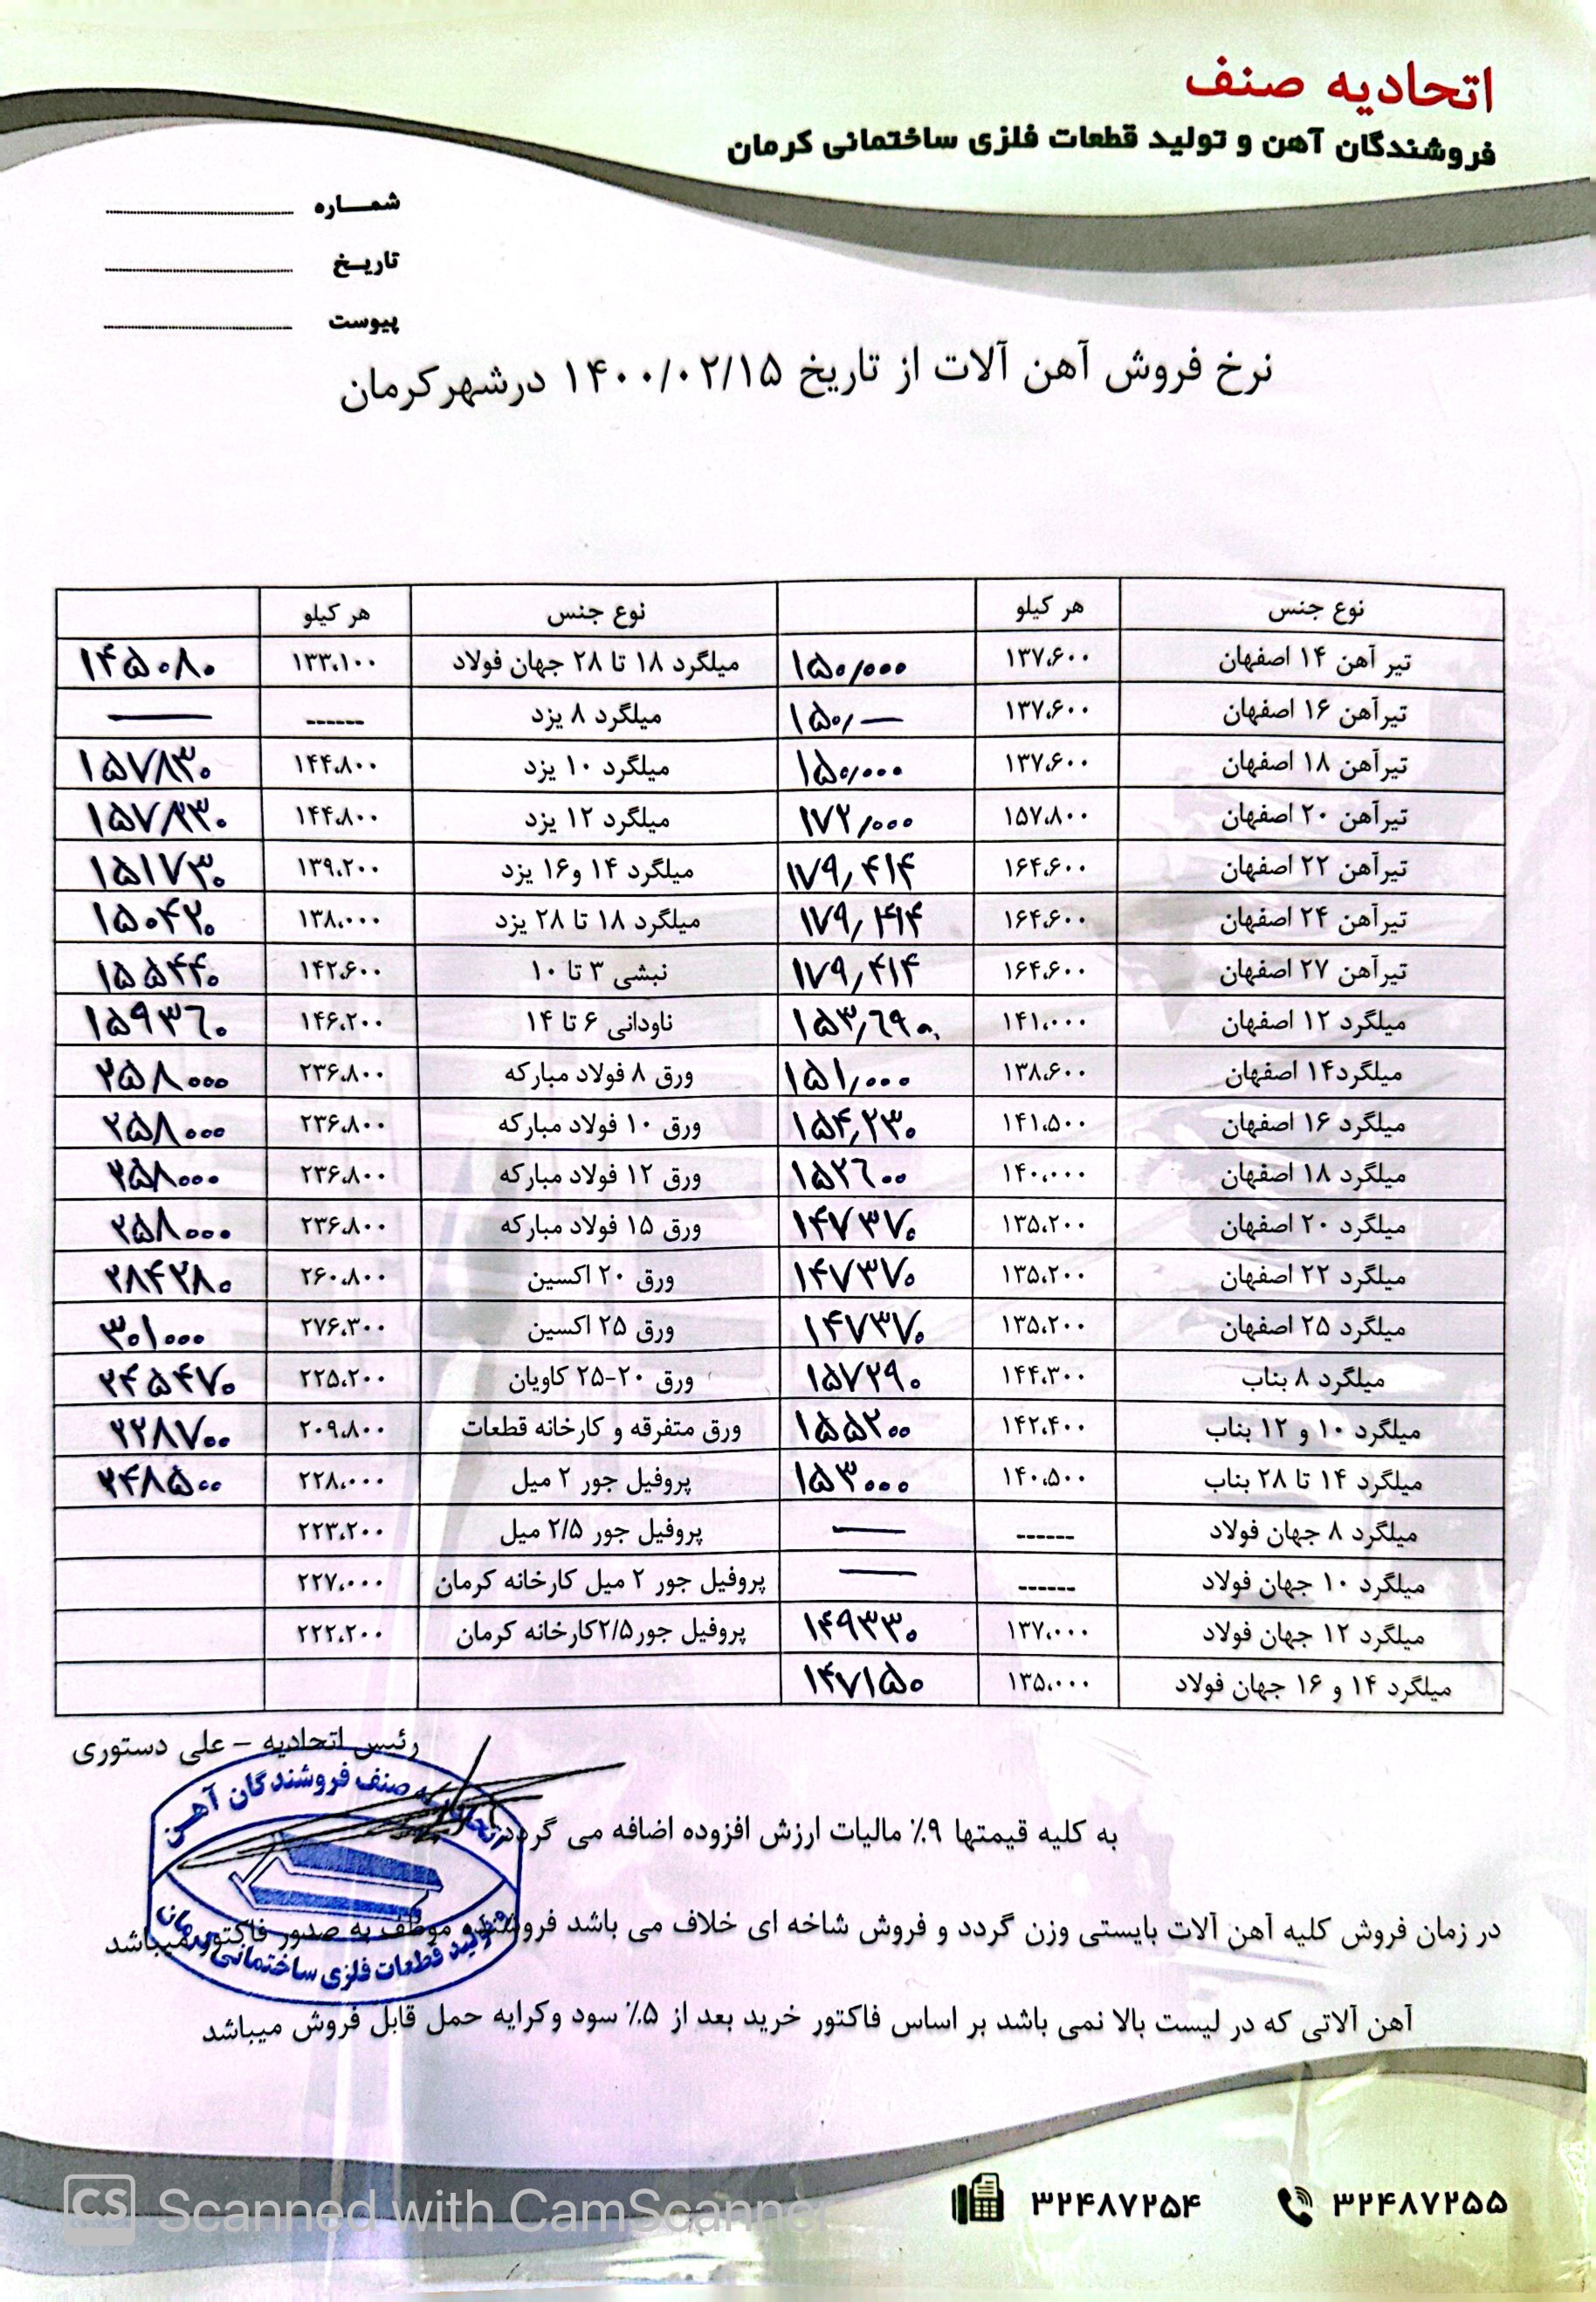 اتحادیه صنف
فروشندگان آهن و تولید قطعات فلزی ساختمانی کرمان
شمـــاره
تاریـخ
پیوست
نرخ فروش آهن آلات از تاریخ ۱۴۰۰/۰۲/۱۵ درشهرکرمان
نوع جنس هر کیلو نوع جنس هر کیلو
تیر آهن ۱۴ اصفهان ۱۳۷،۶۰۰ ۱۵۰,۰۰۰ میلگرد ۱۸ تا ۲۸ جهان فولاد ۱۳۳،۱۰۰ ۱۴۵۰۸۰
تیرآهن ۱۶ اصفهان ۱۳۷،۶۰۰ ۱۵۰,— میلگرد ۸ یزد ------ —
تیرآهن ۱۸ اصفهان ۱۳۷،۶۰۰ ۱۵۰,۰۰۰ میلگرد ۱۰ یزد ۱۴۴،۸۰۰ ۱۵۷۸۳۰
تیرآهن ۲۰ اصفهان ۱۵۷،۸۰۰ ۱۷۲,۰۰۰ میلگرد ۱۲ یزد ۱۴۴،۸۰۰ ۱۵۷۸۳۰
تیرآهن ۲۲ اصفهان ۱۶۴،۶۰۰ ۱۷۹,۴۱۴ میلگرد ۱۴ و۱۶ یزد ۱۳۹،۲۰۰ ۱۵۱۷۳۰
تیرآهن ۲۴ اصفهان ۱۶۴،۶۰۰ ۱۷۹,۴۱۴ میلگرد ۱۸ تا ۲۸ یزد ۱۳۸،۰۰۰ ۱۵۰۴۲۰
تیرآهن ۲۷ اصفهان ۱۶۴،۶۰۰ ۱۷۹,۴۱۴ نبشی ۳ تا ۱۰ ۱۴۲،۶۰۰ ۱۵۵۴۴۰
میلگرد ۱۲ اصفهان ۱۴۱،۰۰۰ ۱۵۳,۶۹۰ ناودانی ۶ تا ۱۴ ۱۴۶،۲۰۰ ۱۵۹۳۶۰
میلگرد۱۴ اصفهان ۱۳۸،۶۰۰ ۱۵۱,۰۰۰ ورق ۸ فولاد مبارکه ۲۳۶،۸۰۰ ۲۵۸۰۰۰
میلگرد ۱۶ اصفهان ۱۴۱،۵۰۰ ۱۵۴,۲۳۰ ورق ۱۰ فولاد مبارکه ۲۳۶،۸۰۰ ۲۵۸۰۰۰
میلگرد ۱۸ اصفهان ۱۴۰،۰۰۰ ۱۵۲۶۰۰ ورق ۱۲ فولاد مبارکه ۲۳۶،۸۰۰ ۲۵۸۰۰۰
میلگرد ۲۰ اصفهان ۱۳۵،۲۰۰ ۱۴۷۳۷۰ ورق ۱۵ فولاد مبارکه ۲۳۶،۸۰۰ ۲۵۸۰۰۰
میلگرد ۲۲ اصفهان ۱۳۵،۲۰۰ ۱۴۷۳۷۰ ورق ۲۰ اکسین ۲۶۰،۸۰۰ ۲۸۴۲۸۰
میلگرد ۲۵ اصفهان ۱۳۵،۲۰۰ ۱۴۷۳۷۰ ورق ۲۵ اکسین ۲۷۶،۳۰۰ ۳۰۱۰۰۰
میلگرد ۸ بناب ۱۴۴،۳۰۰ ۱۵۷۲۹۰ ورق ۲۰-۲۵ کاویان ۲۲۵،۲۰۰ ۲۴۵۴۷۰
میلگرد ۱۰ و ۱۲ بناب ۱۴۲،۴۰۰ ۱۵۵۲۰۰ ورق متفرقه و کارخانه قطعات ۲۰۹،۸۰۰ ۲۲۸۷۰۰
میلگرد ۱۴ تا ۲۸ بناب ۱۴۰،۵۰۰ ۱۵۳۰۰۰ پروفیل جور ۲ میل ۲۲۸،۰۰۰ ۲۴۸۵۰۰
میلگرد ۸ جهان فولاد ------ — پروفیل جور ۲/۵ میل ۲۲۳،۲۰۰
میلگرد ۱۰ جهان فولاد ------ — پروفیل جور ۲ میل کارخانه کرمان ۲۲۷،۰۰۰
میلگرد ۱۲ جهان فولاد ۱۳۷،۰۰۰ ۱۴۹۳۳۰ پروفیل جور۲/۵کارخانه کرمان ۲۲۲،۲۰۰
میلگرد ۱۴ و ۱۶ جهان فولاد ۱۳۵،۰۰۰ ۱۴۷۱۵۰
رئیس اتحادیه – علی دستوری
صنف فروشندگان آهن
تولید قطعات فلزی ساختمانی کرمان
به کلیه قیمتها ۹٪ مالیات ارزش افزوده اضافه می گردد
در زمان فروش کلیه آهن آلات بایستی وزن گردد و فروش شاخه ای خلاف می باشد فروشنده موظف به صدور فاکتور میباشد
آهن آلاتی که در لیست بالا نمی باشد بر اساس فاکتور خرید بعد از ۵٪ سود وکرایه حمل قابل فروش میباشد
۳۲۴۸۷۲۵۵ ۳۲۴۸۷۲۵۴
CS Scanned with CamScanner